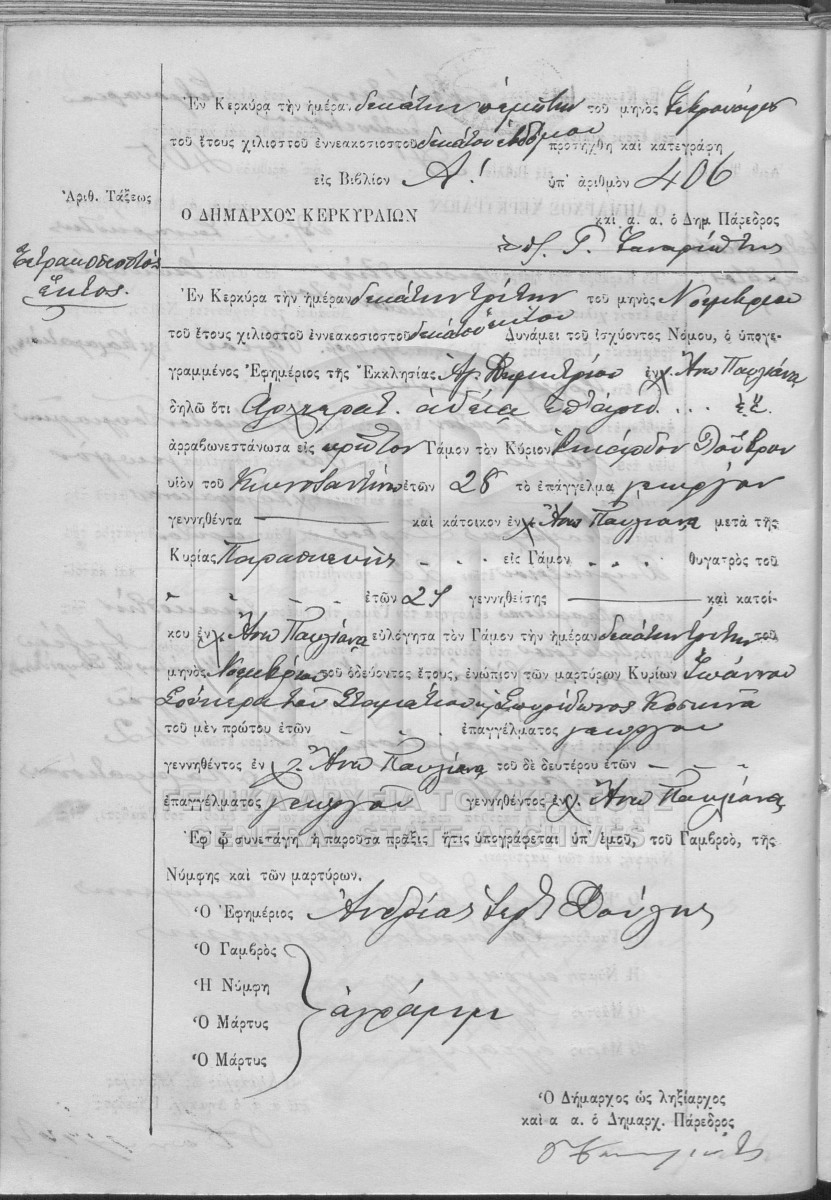 Ἐν Κερκύρᾳ τὴν ἡμέραν δεκάτην πέμπτην τοῦ μηνὸς Φεβρουαρίου
τοῦ ἔτους χιλιοστοῦ ἐννεακοσιοστοῦ δεκάτου ἑβδόμου προσήχθη καὶ κατεγράφη
εἰς Βιβλίον Α! ὑπ' ἀριθμὸν 406
Ἀριθ. Τάξεως
Ο ΔΗΜΑΡΧΟΣ ΚΕΡΚΥΡΑΙΩΝ
καὶ α. α. ὁ Δημ Πάρεδρος
Τετρακοσιοστὸς
Ἕκτος.
Ἐν Κερκύρᾳ τὴν ἡμέραν δεκάτην τρίτην τοῦ μηνὸς Νοεμβρίου
τοῦ ἔτους χιλιοστοῦ ἐννεακοσιοστοῦ δεκάτου ἕκτου Δυνάμει τοῦ ἰσχύοντος Νόμου, ὁ ὑπογε-
γραμμένος Ἐφημέριος τῆς Ἐκκλησίας Ἁγ. Δημητρίου ἐν χ. Ἄνω Παυλιάνα
δηλῶ ὅτι Ἀρχιερατ. ἀδείᾳ
ἀρραβωνεστάνωσα εἰς πρῶτον Γάμον τὸν Κύριον
υἱὸν τοῦ Κωνσταντίνου ἐτῶν 28 τὸ ἐπάγγελμα γεωργὸν
γεννηθέντα καὶ κάτοικον ἐν χ. Ἄνω Παυλιάνα μετὰ τῆς
Κυρίας Παρασκευῆς εἰς Γάμον θυγατρὸς τοῦ
ἐτῶν 24 γεννηθείσης καὶ κατοί-
κου ἐν χ. Ἄνω Παυλιάνα εὐλόγησα τὸν Γάμον τὴν ἡμέραν δεκάτην τρίτην τοῦ
μηνὸς Νοεμβρίου τοῦ ὁδεύοντος ἔτους, ἐνώπιον τῶν μαρτύρων Κυρίων Ἰωάννου
τοῦ Σταματίου κ Σπυρίδωνος Κοσκινᾶ
τοῦ μὲν πρώτου ἐτῶν ἐπαγγέλματος γεωργοῦ
γεννηθέντος ἐν χ. Ἄνω Παυλιάνα τοῦ δὲ δευτέρου ἐτῶν
ἐπαγγέλματος γεωργοῦ γεννηθέντος ἐν χ. Ἄνω Παυλιάνα
ΓΕΝΙΚΑ ΑΡΧΕΙΑ ΤΟΥ ΚΡΑΤΟΥΣ
GENERAL STATE ARCHIVES
Ἐφ ᾧ συνετάγη ἡ παροῦσα πρᾶξις ἥτις ὑπογράφεται ὑπ' ἐμοῦ, τοῦ Γαμβροῦ, τῆς
Νύμφης καὶ τῶν μαρτύρων.
Ὁ Ἐφημέριος Ἀνδρέας Ἱερεὺς
Ὁ Γαμβρὸς
Ἡ Νύμφη
ἀγράμμ
Ὁ Μάρτυς
Ὁ Μάρτυς
Ὁ Δήμαρχος ὡς ληξίαρχος
καὶ α α. ὁ Δημαρχ. Πάρεδρος